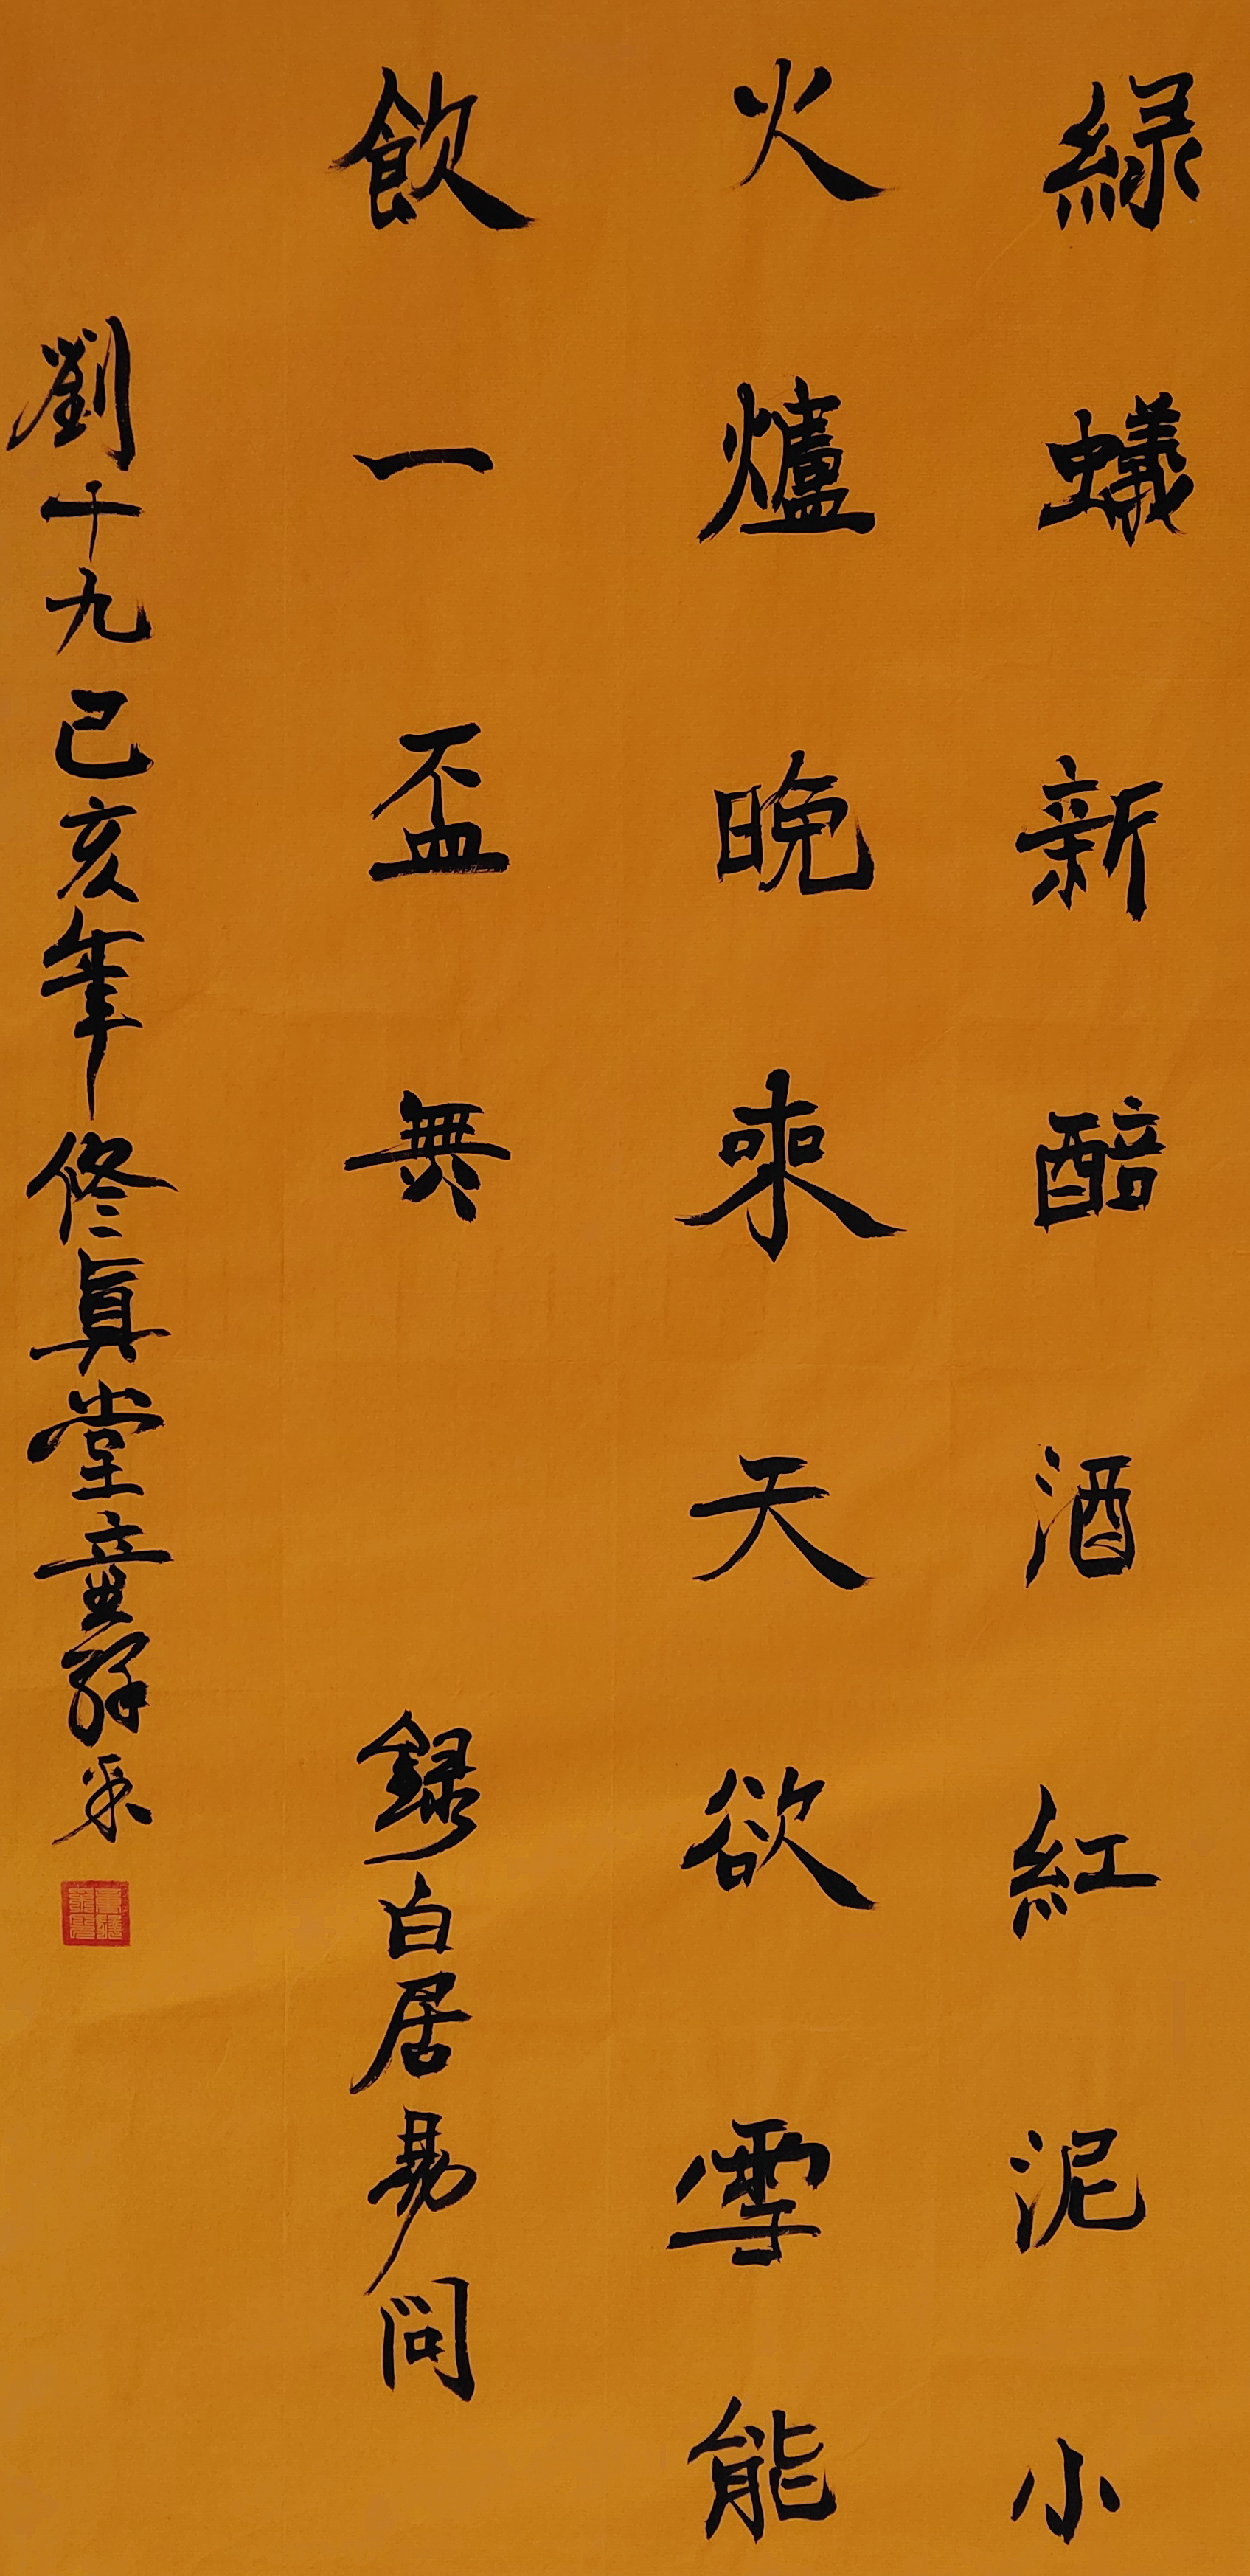 綠蟻新醅酒紅泥小
火爐晚來天欲雪能
飲一盃無
錄白居易問
劉十九己亥年修真堂童